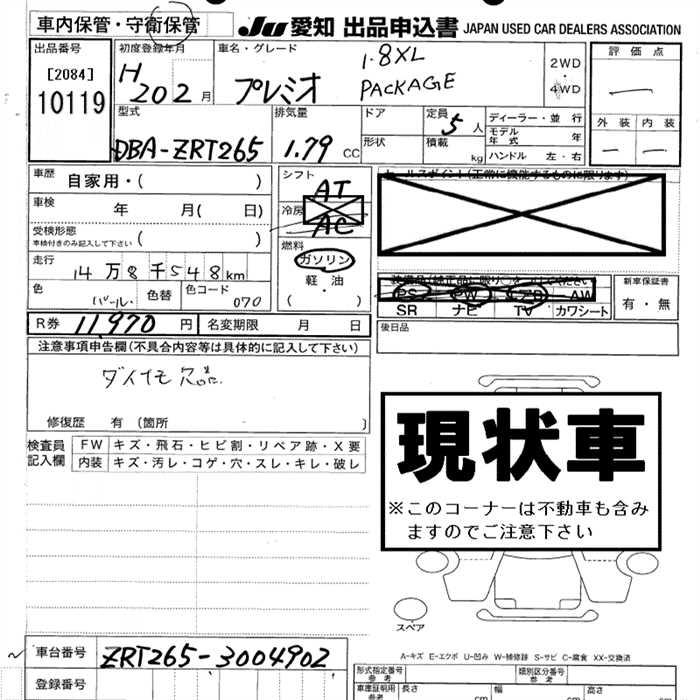 車内保管・守衛保管
JU 愛知 出品申込書 JAPAN USED CAR DEALERS ASSOCIATION
出品番号
[2084]
10119
初度登録年月
H 20 2 月
車名・グレード
プレミオ
1.8XL
PACKAGE
2WD
・
4WD
評価点
外装 内装
型式
DBA-ZRT265
排気量
1.79 CC
ドア
形状
定員
5 人
積載
kg
ディーラー・並行
モデル年式 年
ハンドル 左・右
車歴 自家用・( )
車検 年 月( 日)
受検形態
車検付きのみ記入して下さい ( )
走行
14万8千548km
色 パール・
色替
色コード 070
シフト
AT
冷房
AC
燃料
ガソリン
軽・油
( ・ )
セールスポイント(正常に機能するものに限ります)
PS PW AW
SR ナビ TV カワシート
新車保証書
有・無
R券 11,970 円
名変期限 月 日
後日品
注意事項申告欄(不具合内容等は具体的に記入して下さい)
修復歴 有 (箇所 )
検査員
記入欄
FW キズ・飛石・ヒビ割・リペア跡・X要
内装 キズ・汚レ・コゲ・穴・スレ・キレ・破レ
現状車
※このコーナーは不動車も含み
ますのでご注意下さい
スペア
A-キズ E-エクボ U-凹み W-補修跡 S-サビ C-腐食 XX-交換済
車台番号 ZRT265-3004902
登録番号
形式指定番号
参考
類別区分番号
参考
車庫証明用
参考
長さ cm
幅 cm
高さ cm